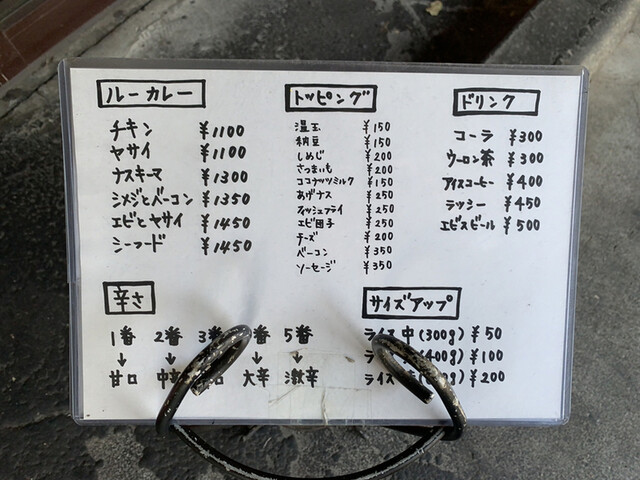 ルーカレー
チキン ¥1100
ヤサイ ¥1100
ナスキーマ ¥1300
シメジとベーコン ¥1350
エビとヤサイ ¥1450
シーフード ¥1450
トッピング
温玉 ¥150
納豆 ¥150
しめじ ¥200
さつまいも ¥200
ココナッツミルク ¥150
あげナス ¥250
フィッシュフライ ¥250
エビ団子 ¥250
チーズ ¥200
ベーコン ¥350
ソーセージ ¥350
ドリンク
コーラ ¥300
ウーロン茶 ¥300
アイスコーヒー ¥400
ラッシー ¥450
エビスビール ¥500
辛さ
1番 2番 3番 番 5番
↓ ↓ ↓ ↓
甘口 中辛 口 大辛 激辛
サイズアップ
ライス 中(300g) ¥50
ラ (400g) ¥100
ライス g) ¥200